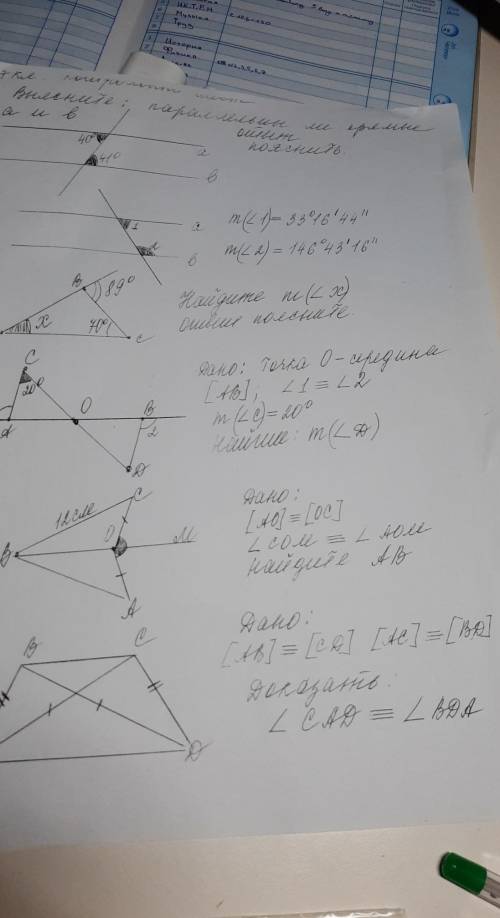 История
Физика
7 кл.
Выясните; параллельны ли прямые
а и в
ответ
пояснить.
40°
a
41°
в
1
a
2
в
m(∠1)=33°16'44"
m(∠2)=146°43'16"
B
89°
X
70°
C
Найдите m(∠X)
ответ поясните.
C
20°
O
B
A
2
D
Дано: точка O-середина
[AB]; ∠1≡∠2
m(∠C)=20°
Найти: m(∠D)
12см
C
B
O
M
A
Дано:
[AO]≡[OC]
∠COM≡∠AOM
Найдите AB
B
C
D
Дано:
[AB]≡[CD] [AC]≡[BD]
Доказать:
∠CAD≡∠BDA